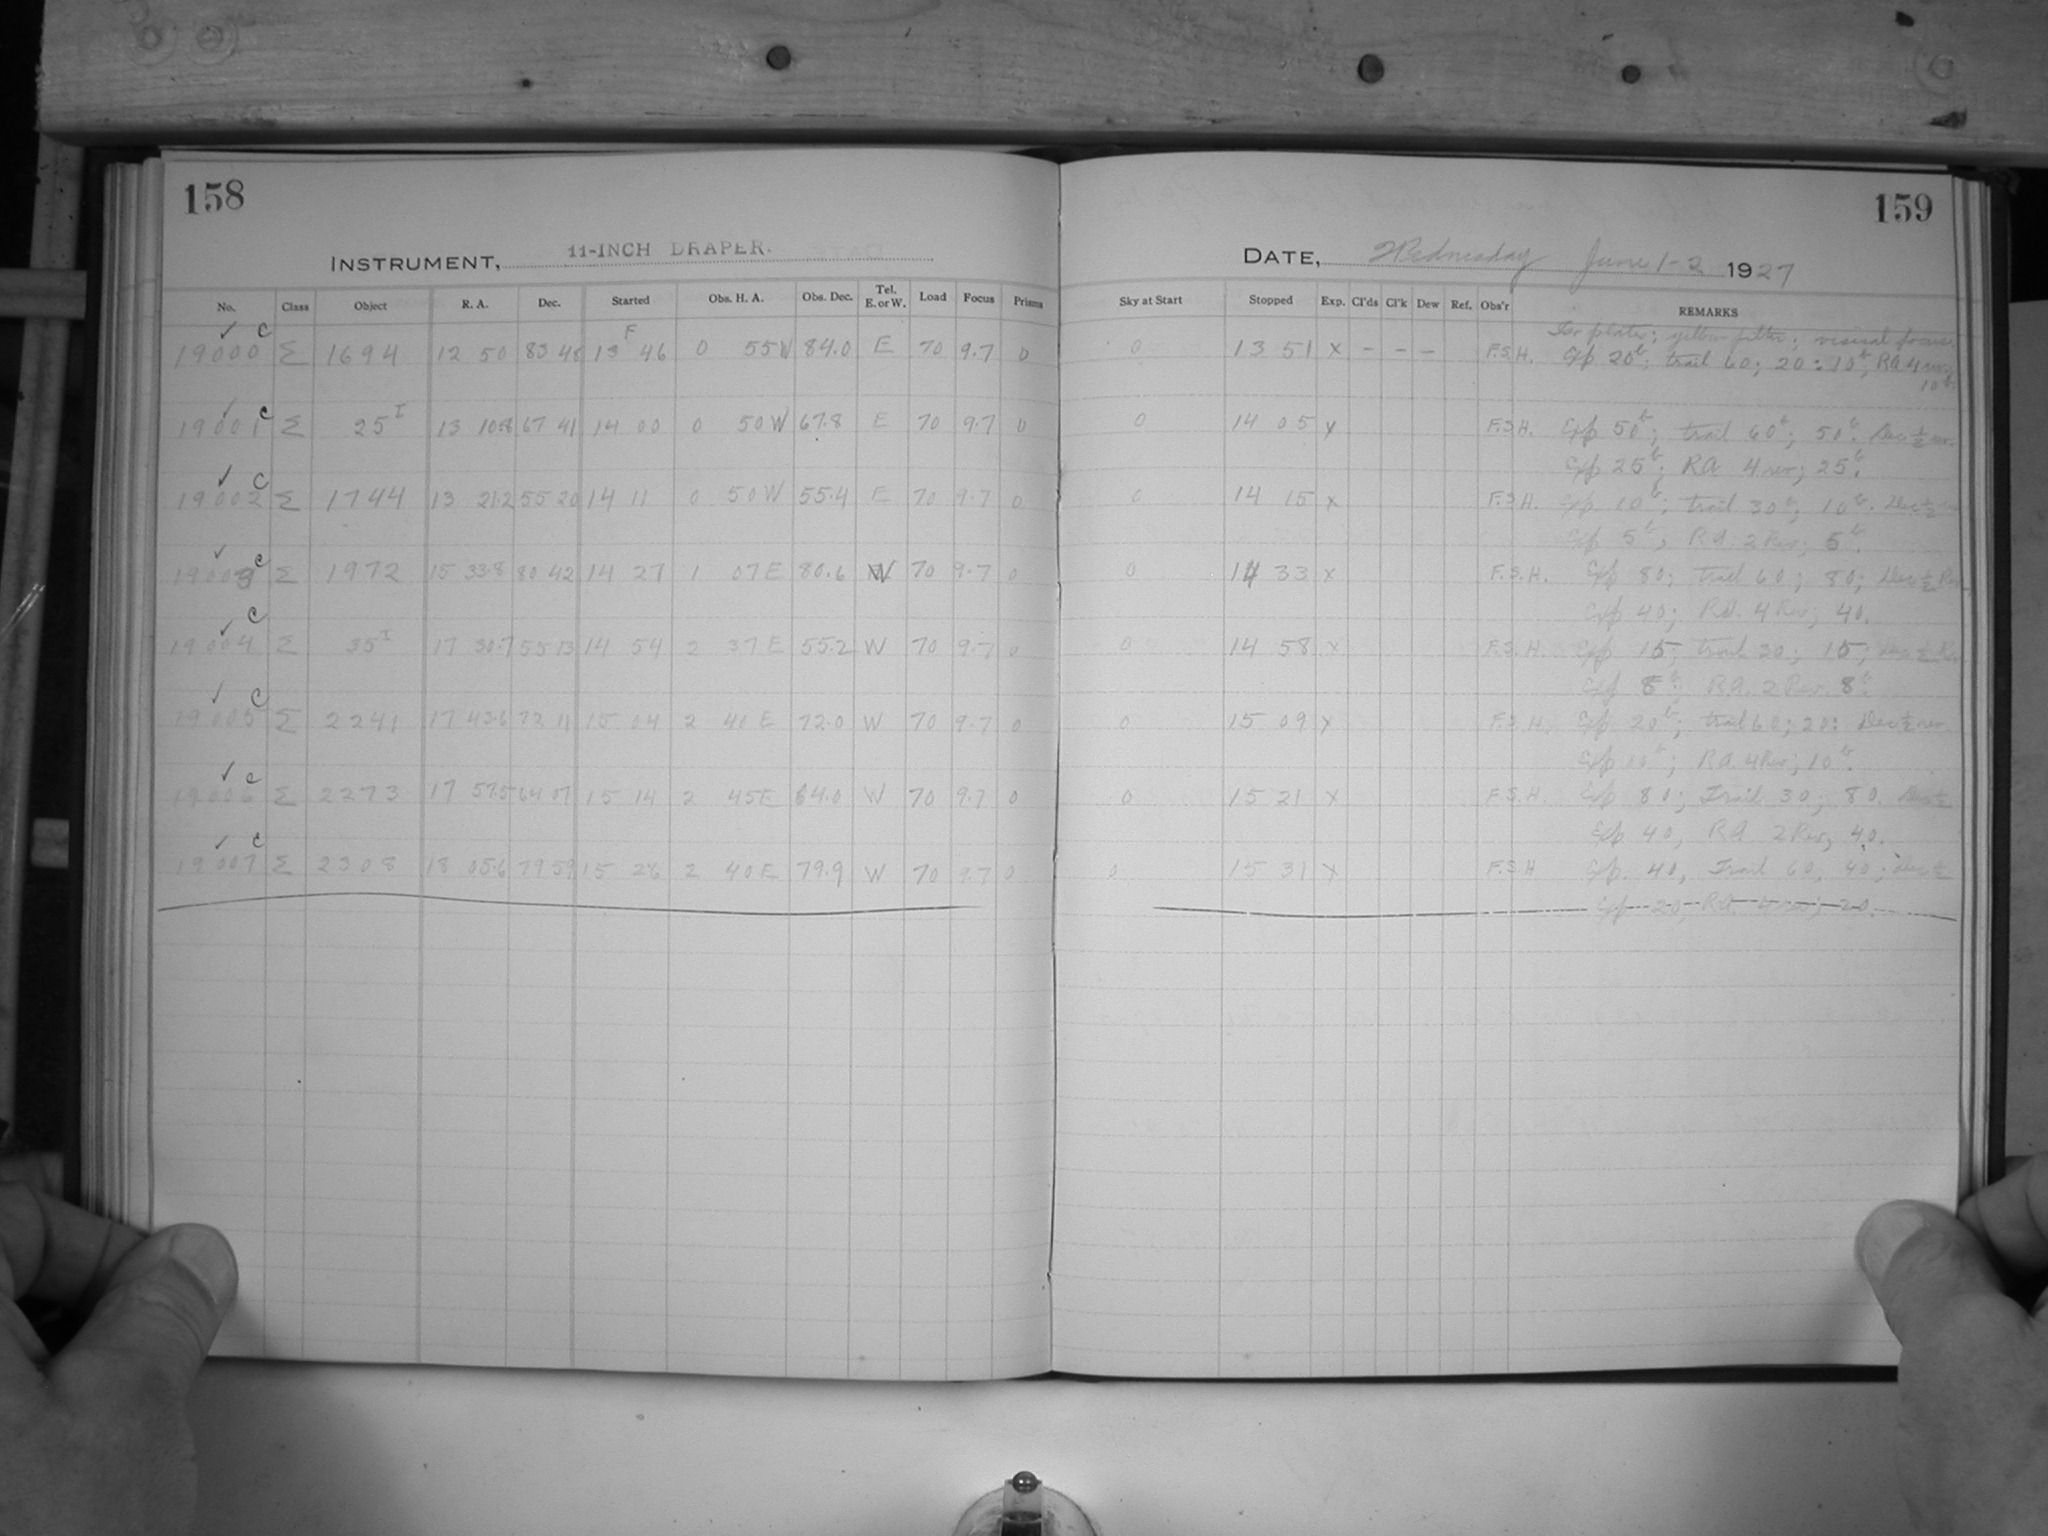 158
INSTRUMENT, 11-INCH DRAPER.
No. Class Object R. A. Dec. Started Obs. H. A. Obs. Dec. Tel. E. or W. Load Focus Prisms
✓ C F
19000 Σ 1694 12 50 83 48 13 46 0 55 W 84.0 E 70 9.7 0
✓ C
19001 Σ 25 I 13 10.8 67 41 14 00 0 50 W 67.8 E 70 9.7 0
✓ C
19002 Σ 1744 13 21.2 55 20 14 11 0 50 W 55.4 E 70 9.7 0
✓ C
19003 Σ 1972 15 33.8 80 42 14 27 1 07 E 80.6 W 70 9.7 0
✓ C
19004 Σ 35 I 17 30.7 55 13 14 54 2 37 E 55.2 W 70 9.7 0
✓ C
19005 Σ 2241 17 43.6 72 11 15 04 2 40 E 72.0 W 70 9.7 0
✓ C
19006 Σ 2273 17 57.5 64 07 15 14 2 45 E 64.0 W 70 9.7 0
✓ C
19007 Σ 2308 18 05.6 79 59 15 26 2 40 E 79.9 W 70 9.7 0
159
DATE, Wednesday June 1-2 1927
Sky at Start Stopped Exp. Cl'ds Cl'k Dew Ref. Obs'r REMARKS
Iso plates; yellow filter; visual focus.
0 13 51 x – – – F.S.H. Exp 20t; trail 60; 20: 10t; RA 4 rev;
10t.
0 14 05 x F.S.H. Exp 50t; trail 60t; 50t. Dec ½ rev.
Exp 25t; RA 4 rev; 25t.
0 14 15 x F.S.H. Exp 10t; trail 30t; 10t. Dec ½
Exp 5t; RA. 2 Rev; 5t.
0 14 33 x F.S.H. Exp 80; trail 60; 80; Dec ½ Rev
Exp 40; RA. 4 Rev; 40.
0 14 58 x F.S.H. Exp 15; trail 30; 15; Dec ½ Rev
Exp 8t; RA. 2 Rev. 8t.
0 15 09 x F.S.H. Exp 20t; trail 60; 20: Dec ½ rev.
Exp 10t; RA 4 Rev; 10t.
0 15 21 x F.S.H. Exp 80; Trail 30; 80. Dec ½
Exp 40, RA 2 Rev; 40.
0 15 31 x F.S.H Exp. 40, Trail 60, 40; Dec ½
Exp 20, RA 4 rev; 20.